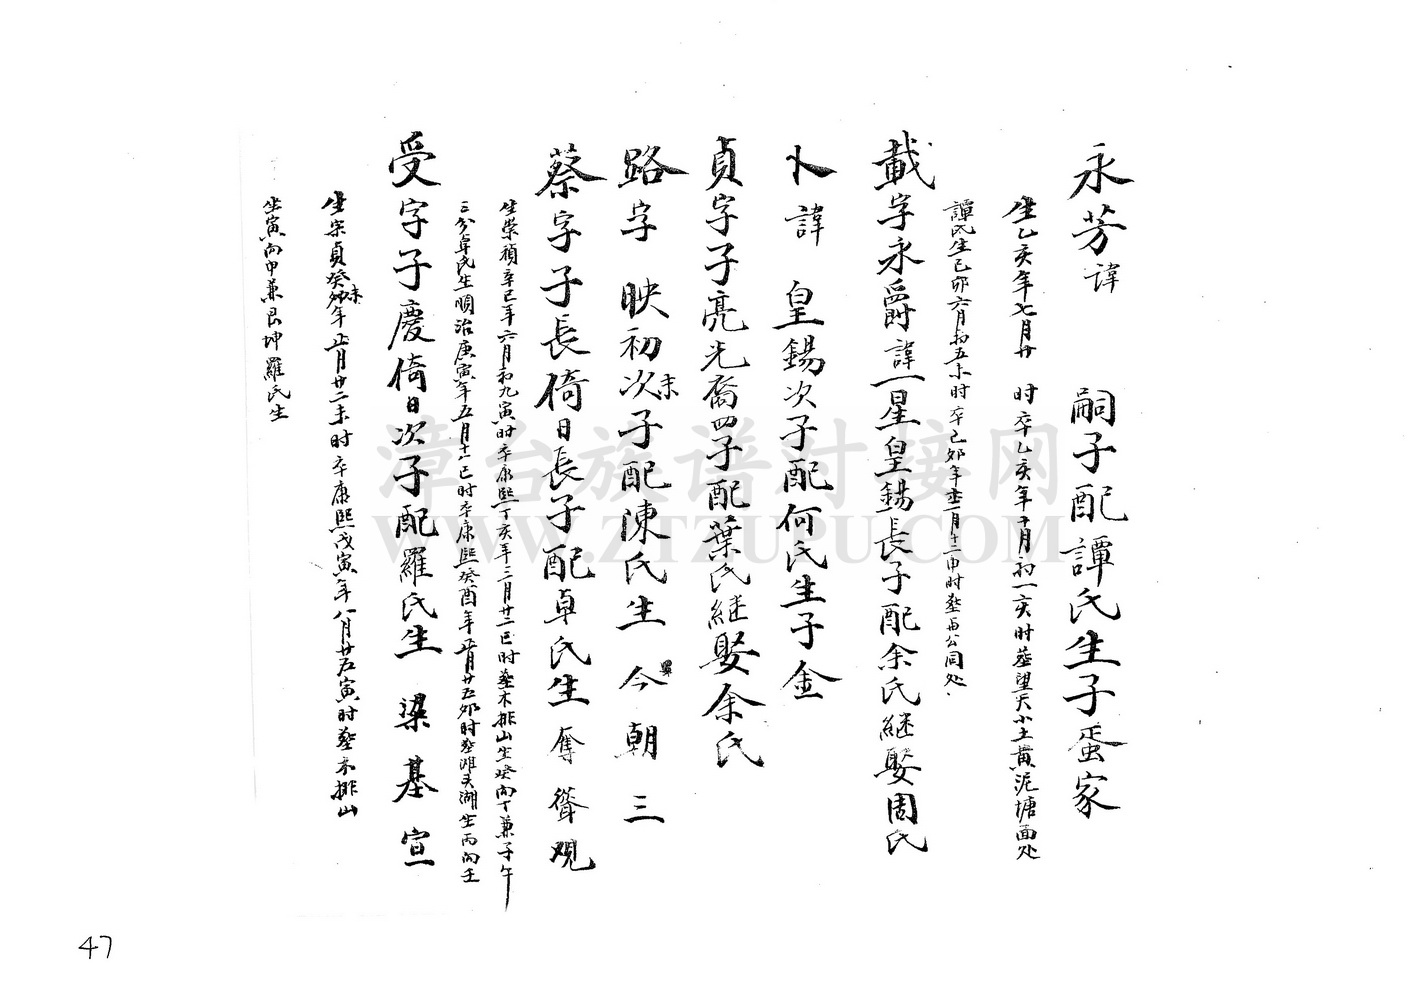 永芳諱 嗣子配譚氏生子蛋家
生乙亥年七月廿 时卒乙亥年十月初一亥时葬望天小土黄泥塘面处
譚氏生己卯六月初五未时卒己卯年十一月十二申时葬与公同处
載字永爵諱一星皇錫長子配余氏継娶周氏
卜諱 皇錫次子配何氏生子金
貞字子亮光裔四子配葉氏継娶余氏
路字 映初次未子配陳氏生 今朝三
蔡字子長倚日長子配卓氏生 奪聳观
生崇禎辛巳年六月初九寅时卒康熙丁亥年三月廿二巳时葬木排山坐癸向丁兼子午
三分卓氏生順治庚寅年五月十一巳时卒康熙癸酉年正月廿五卯时葬滩头湖坐丙向壬
受字子慶倚日次子配羅氏生 梁基宣
生崇貞癸卯未年正月廿二未时卒康熙戊寅年八月廿五寅时葬木排山
坐寅向申兼艮坤羅氏生
漳台族谱对接网
WWW.ZTZUPU.COM
47